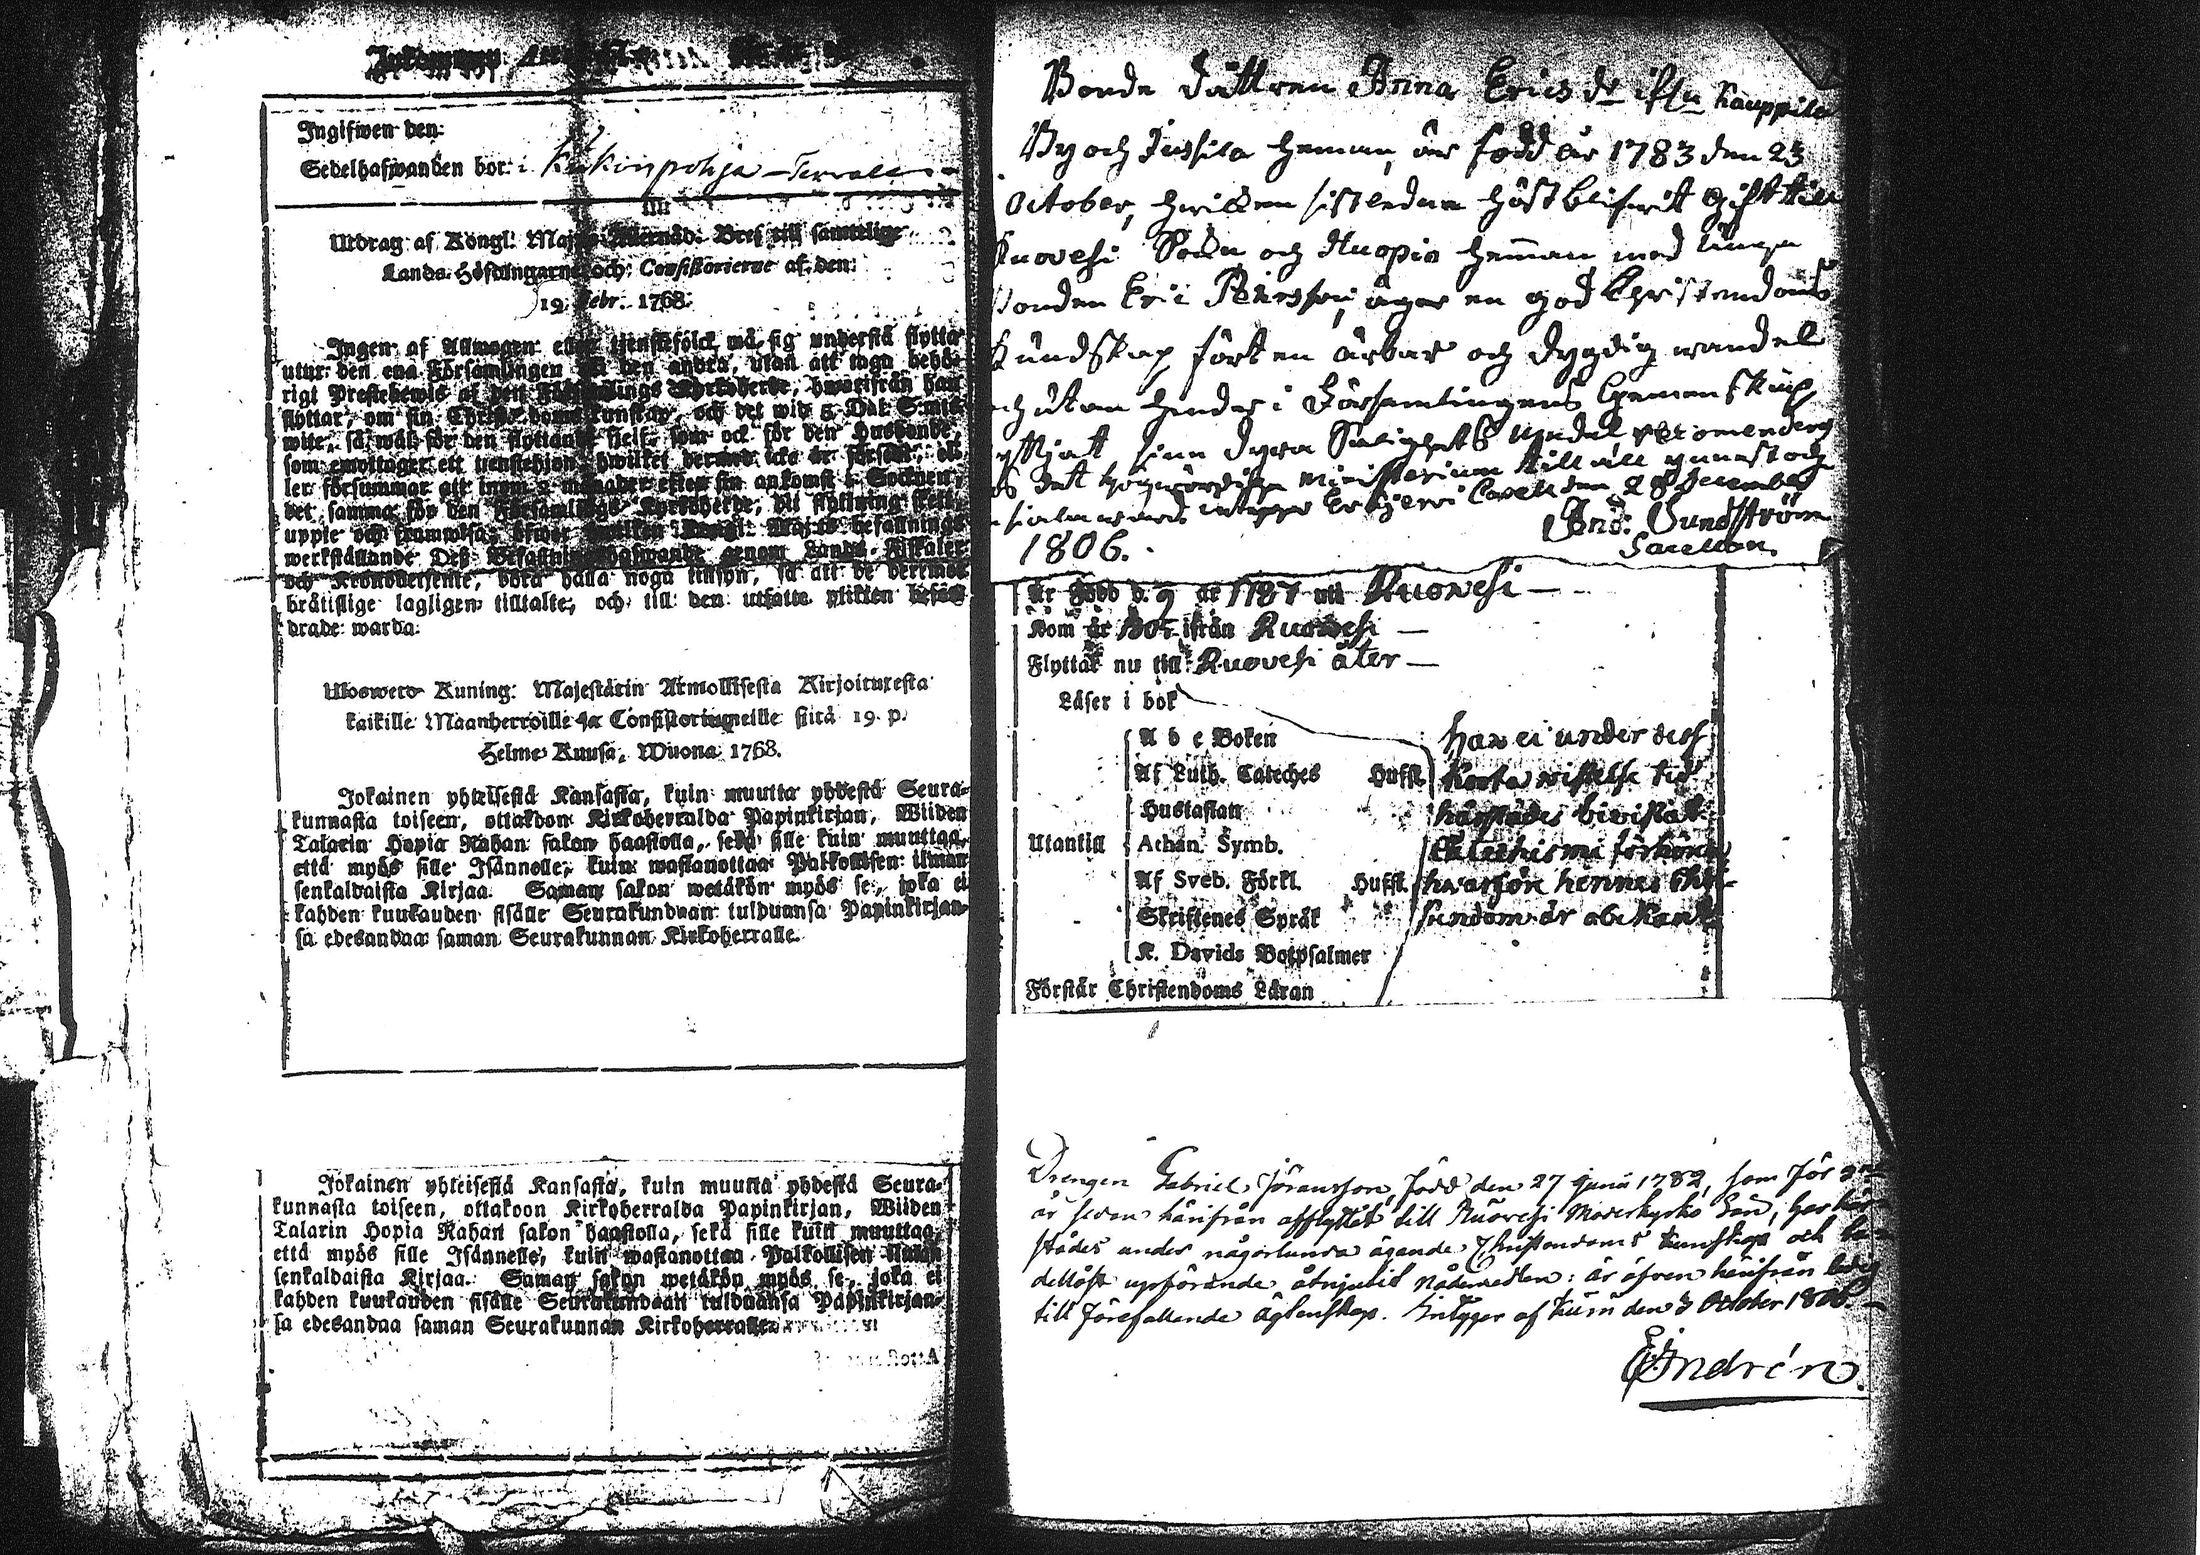 Ingifwen den:
Sedelhafwanden bor i Kukinpohja
Utdrag af Kongl. Maj:ts Allernåd. Bref till samtelige
Lands-Höfdingarne och Consistorierne af den
19 Febr. 1768.
Ingen af Allmogen eller tjenstefolck må sig understå flytta
utur den ena Församlingen til den andra, utan att taga behö-
rigt Prestebewis af den Församlings Kyrkoherde, hwarifrån han
flyttar, om sin Christendoms kunskap, och det wid 5 Dal. S:mt
wite, så wäl för den flyttande sielf, som ock för den Husbonde,
som emottager ett tienstehjon, hwilket dermed icke är försedt, el-
ler försummar att inom 2 månader efter sin ankomst i Socknen,
det samma för den Församlings Kyrkoherde, dit flyttning skett,
uppte och framwisa; öfwer hwilken Kongl. Maj:ts befallnings
werkställande Deß Befallningshafwande genom Lands-Fiskaler
och Kronobetjente, böra hålla noga tillsyn, så att de deremot
bråtislige lagligen tilltalte, och till den utsatte plikten befor-
drade warda.
Ulosweto Kuning: Majestätin Armollisesta Kirjoituxesta
kaikille Maanherroille ja Consistoriumeille siitä 19. p.
Helme Kuusa, Wuona 1768.
Jokainen yhteisestä Kansasta, kuin muutta yhdestä Seura-
kunnasta toiseen, ottakoon Kirkoherralda Papinkirjan, Wiiden
Talarin Hopia Rahan sakon haastolla, sekä sille kuin muuttaa,
että myös sille Isännelle, kuin wastanottaa Palkollisen ilman
senkaldaista Kirjaa. Saman sakon wetäkön myös se, joka ei
kahden kuukauden sisälle Seurakundaan tulduansa Papinkirjan-
sa edesandaa saman Seurakunnan Kirkoherralle.
Jokainen yhteisestä Kansasta, kuin muutta yhdestä Seura-
kunnasta toiseen, ottakoon Kirkoherralda Papinkirjan, Wiiden
Talarin Hopia Rahan sakon haastolla, sekä sille kuin muuttaa,
että myös sille Isännelle, kuin wastanottaa Palkollisen ilman
senkaldaista Kirjaa. Saman sakon wetäkön myös se, joka ei
kahden kuukauden sisälle Seurakundaan tulduansa Papinkirjan-
sa edesandaa saman Seurakunnan Kirkoherralle.
Bonde Dottren Anna Ericsdr ifrn Kauppila
By och Jussila Heman, är född år 1783 den 23
October, hwilken sistledne Höst blifwit gift till
Ruovesi Sokn och Kuopio Heman med unga
Bonden Eric Pehrsson, äger en god Christendoms
Kundskap fört en ärbar och dygdig wandel
och utom hender i Församlingens Gemenskap
sinn dyra Salighets Medel recomenderas
det högwördiga Ministerium till all gunst och
den 28 December
1806.
And: Sundström
Sacellan.
Är Född d. 9 år 1787 uti Ruovesi
Kom år 1805 ifrån Ruovesi
Flyttar nu till Ruovesi åter
Läser i bok
A b c Boken
Af Luth. Cateches Hufst.
Hustaflan
Utantill Athan. Symb.
Af Sveb. Förkl. Hufst.
Skriftenes Språk
K. Davids Botpsalmer
Förstår Christendoms Läran
har ei under dess
korta wistelse tid
härstädes bivistat
Catechismi förhören
hwarföre hennes Chri-
stendom är obekant
Drengen Gabriel Jöransson, född den 27 Junii 1782, som för
år sedan härifrån afflyttat till Ruovesi Moderkyrko Sokn, har här
städes under någorlunda ägande Christendoms kunskap och
dellöst uppförande åtnjutit Nådemedlen: är äfven härifrån ledig
till förefallende Ägtenskap. Intygar af Kuru den 3 October 1806.
E: Indrén